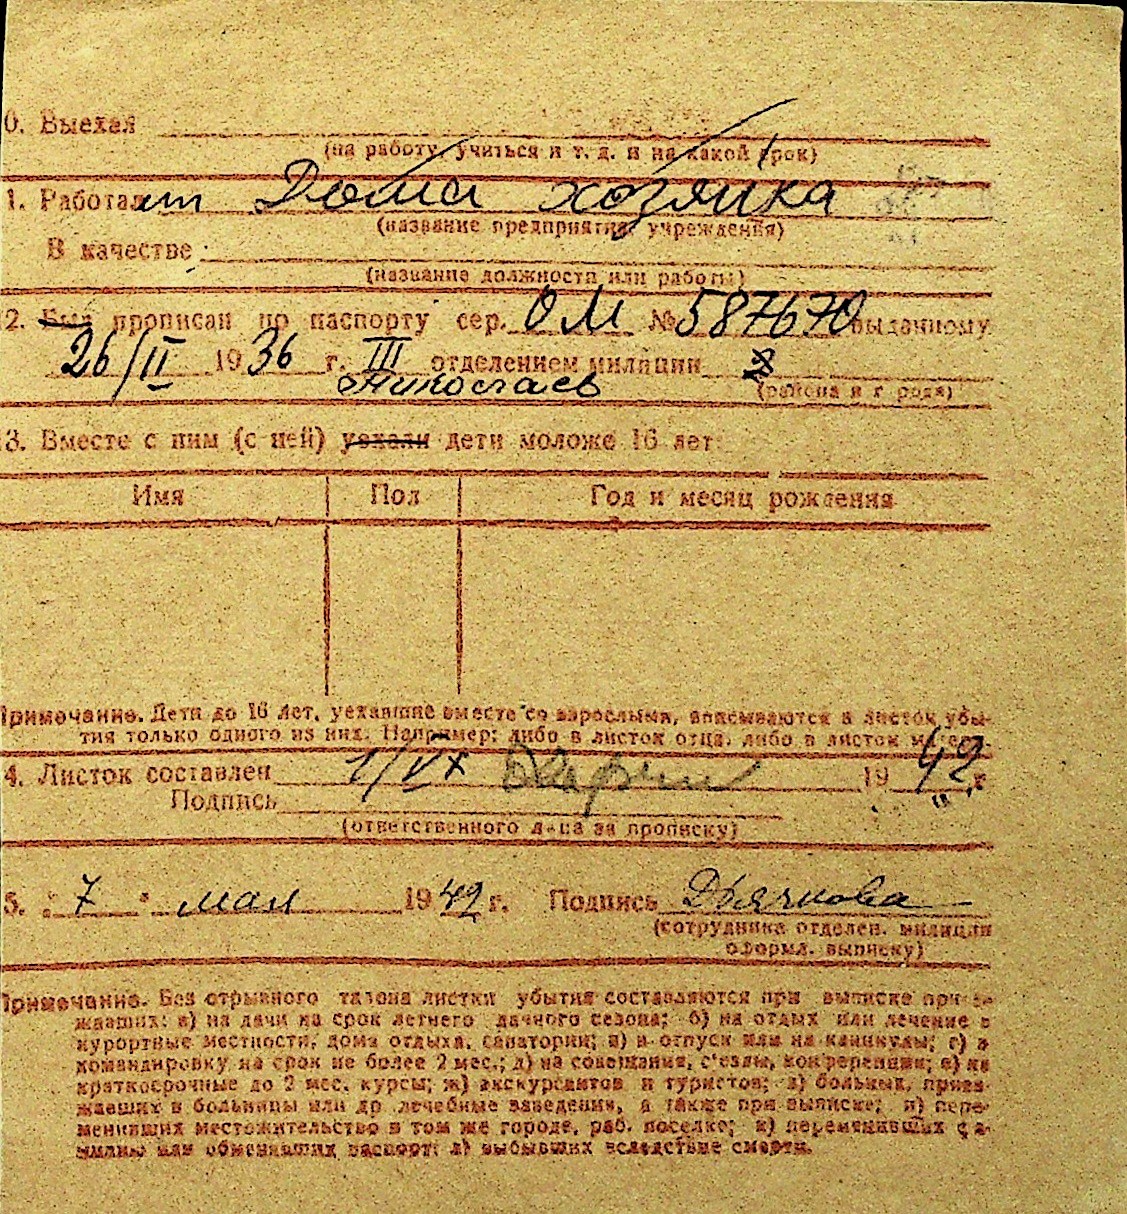 0. Выехал
(на работу, учиться и т. д. и на какой срок)
1. Работает Дома хозяйка
(название предприятия, учреждения)
В качестве
(название должности или работы)
2. Был прописан по паспорту сер. ОМ № 587670 выданному
26/II 1936 г. III отделением милиции
Николаев
(района и города)
3. Вместе с ним (с ней) уехали дети моложе 16 лет:
Имя Пол Год и месяц рождения
Примечание. Дети до 16 лет, уехавшие вместе со взрослыми, вписываются в листок убы-
тия только одного из них. Например: либо в листок отца, либо в листок матери.
4. Листок составлен 1942 г.
Подпись
(ответственного лица за прописку)
5. "7" мая 1942 г. Подпись Дьячкова
(сотрудника отделен. милиции
оформл. выписку)
Примечание. Без отрывного талона листки убытия составляются при выписке приез-
жавших: а) на дачи на срок летнего дачного сезона; б) на отдых или лечение в
курортные местности, дома отдыха, санатории; в) в отпуск или на каникулы; г) в
командировку на срок не более 2 мес.; д) на совещания, с'езды, конференции; е) на
краткосрочные до 2 мес. курсы; ж) экскурсантов и туристов; з) больных, приез-
жавших в больницы или др. лечебные заведения, а также при выписке; и) пере-
менивших местожительство в том же городе, раб. поселке; к) переменивших фа-
милию или обменявших паспорт; л) выбывших вследствие смерти.